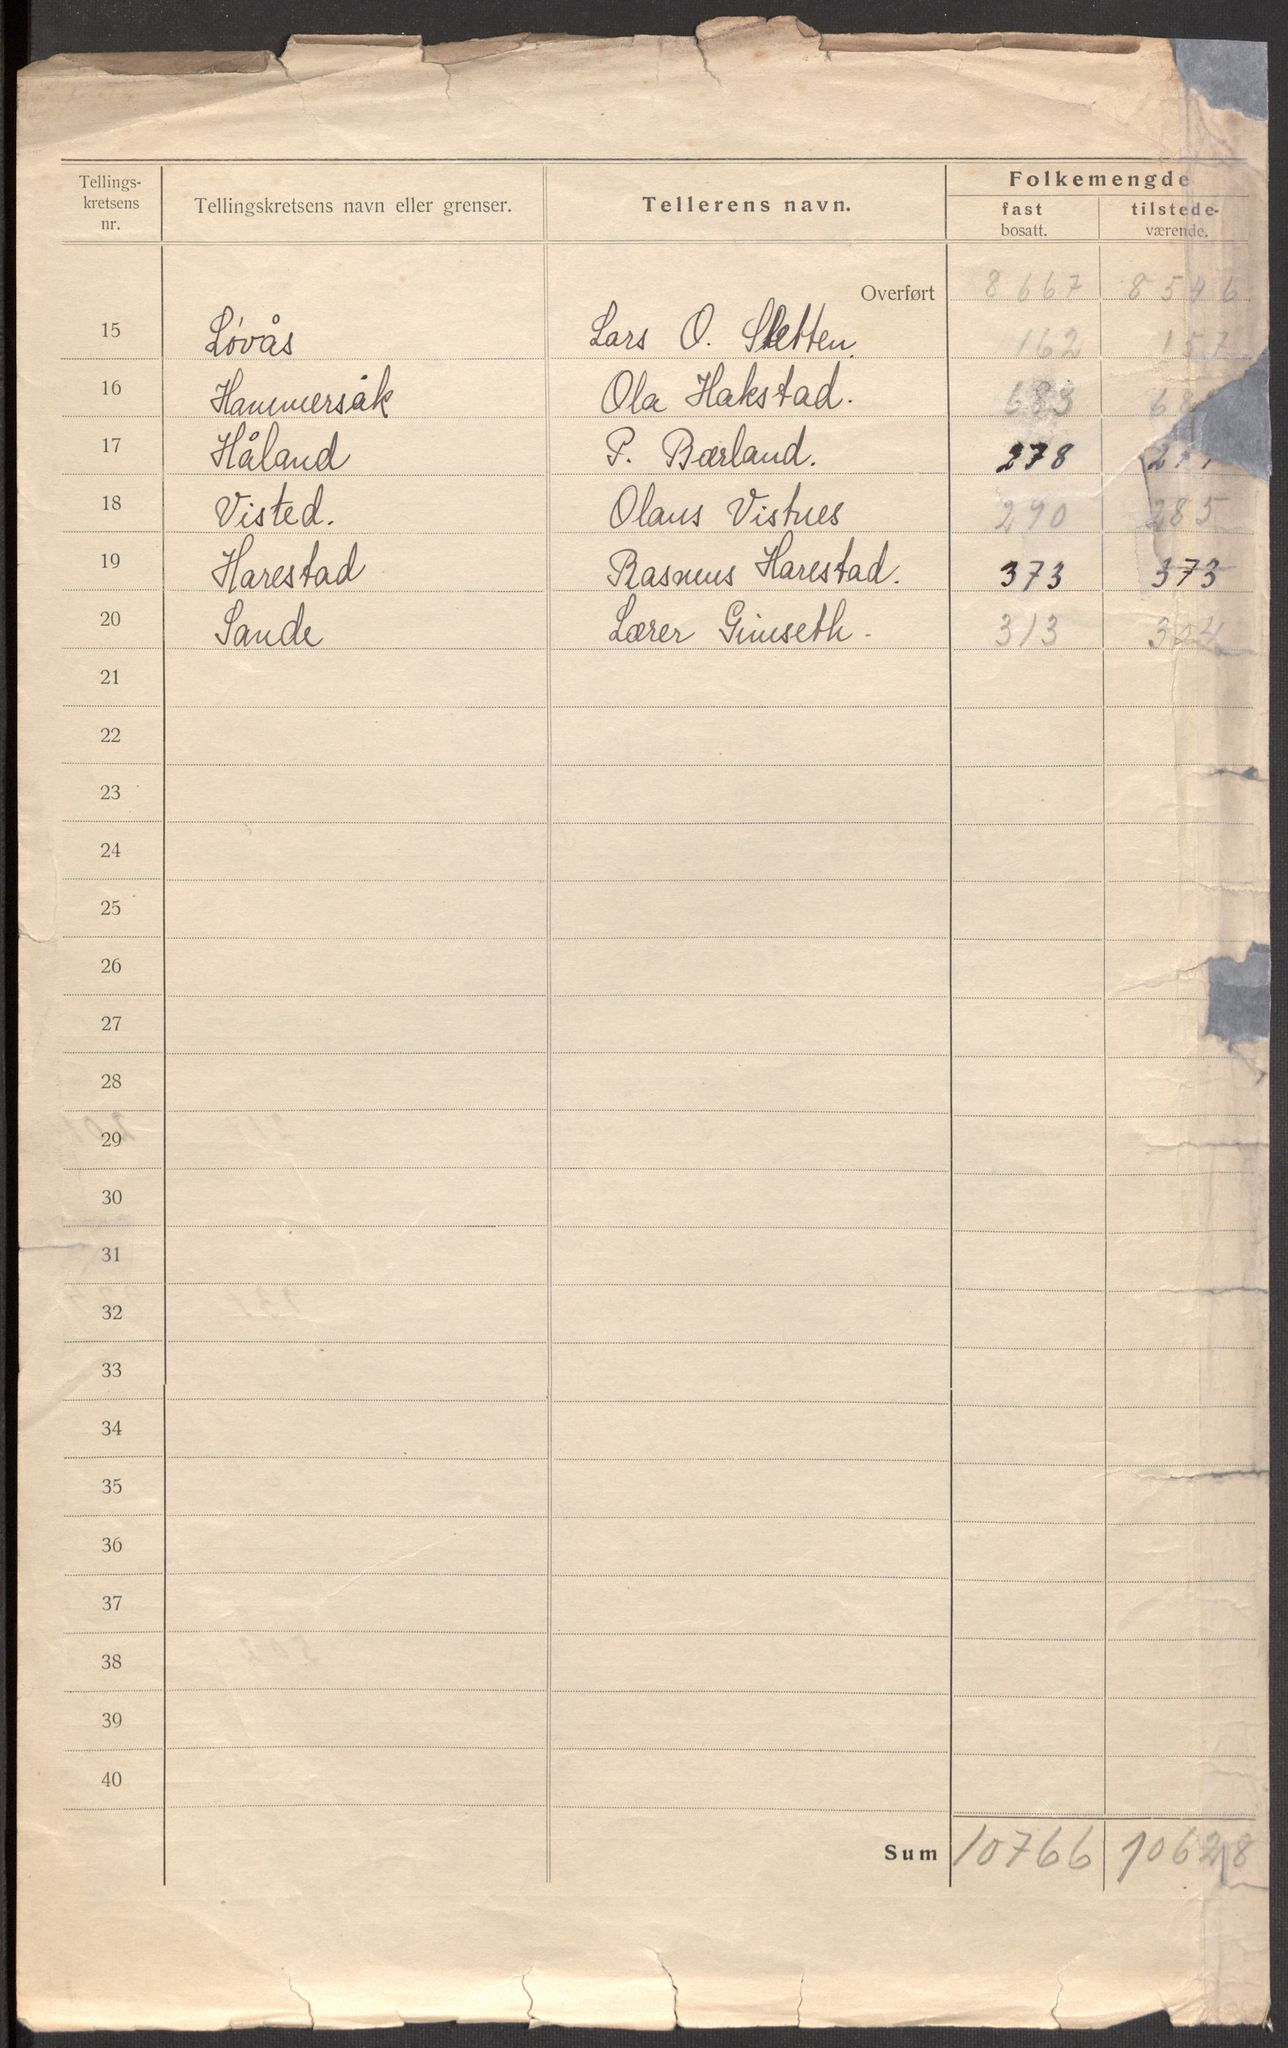 Tellings-
kretsens
nr.
Tellingskretsens navn eller grenser.
Tellerens navn.
Folkemengde
fast
bosatt.
tilstede-
værende.
Overført 8667 8546
15 Løvås Lars O. Sletten. 162 157
16 Hammersåk Ola Hakstad. 683
17 Håland P. Bærland. 278
18 Visted. Olaus Vistnes 290 285
19 Harestad Rasmus Harestad. 373 373
20 Sande Lærer Gimseth. 313 304
21
22
23
24
25
26
27
28
29
30
31
32
33
34
35
36
37
38
39
40
Sum 10766 10628